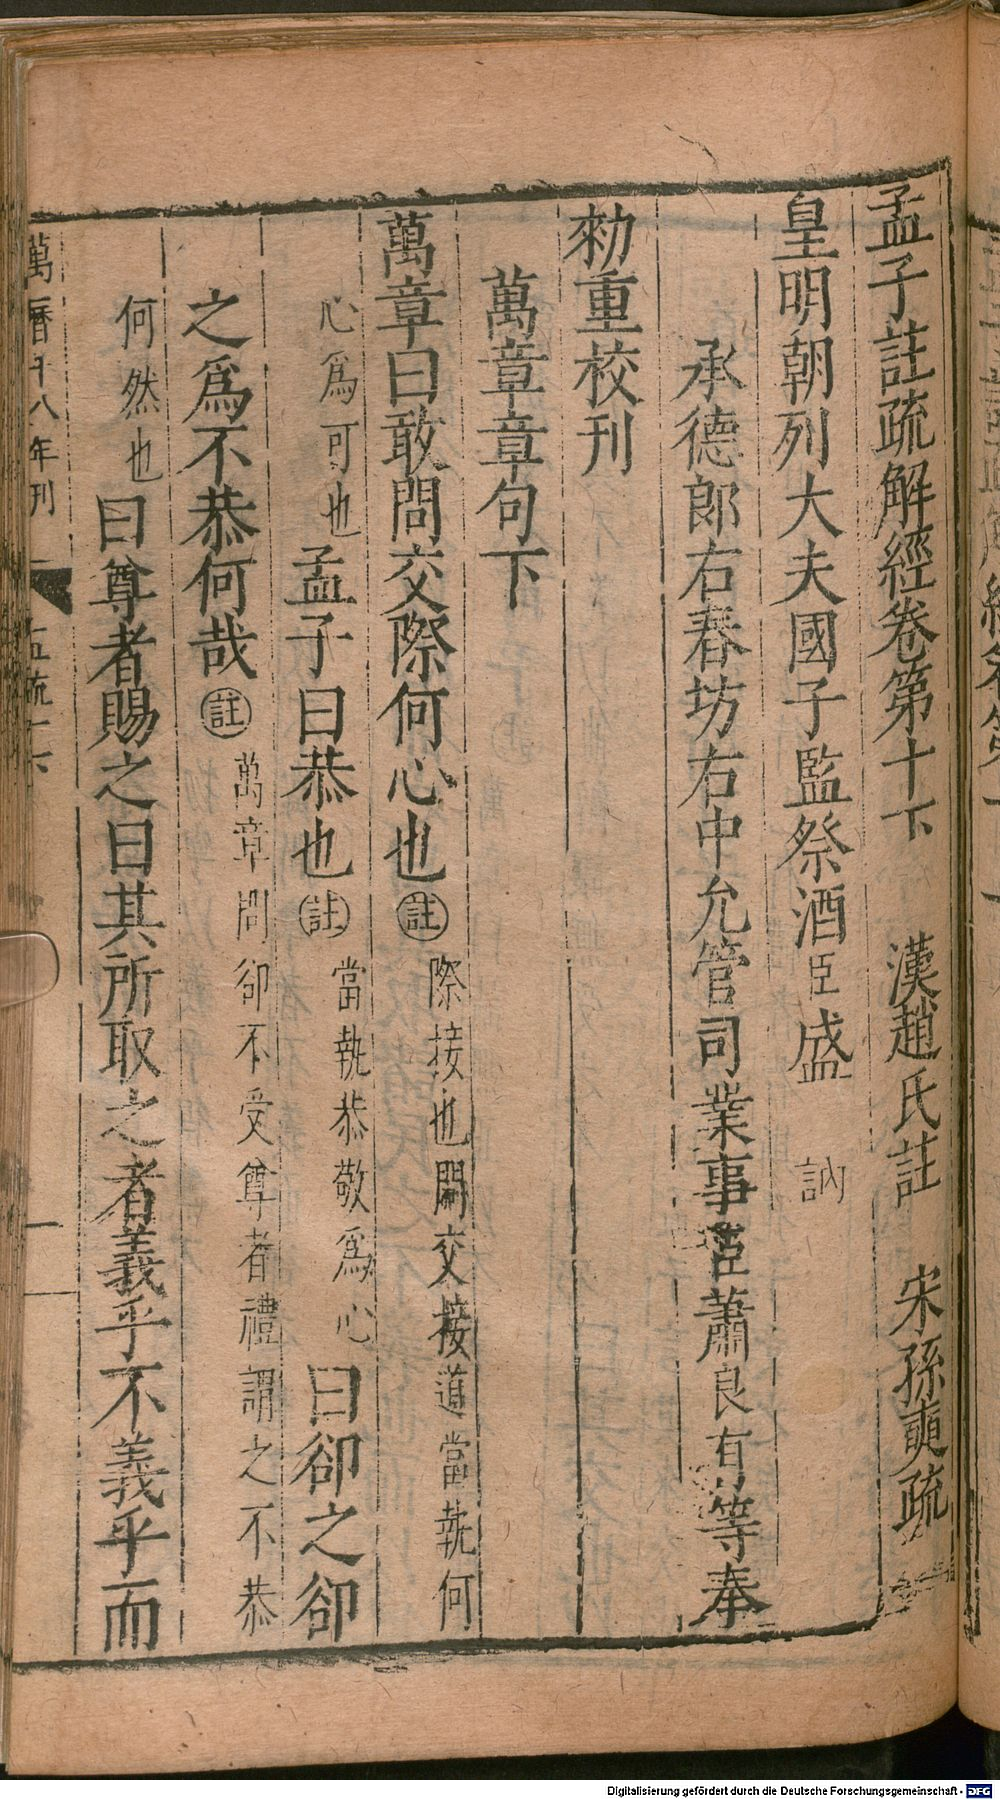 孟子註疏解經卷第十下 漢趙氏註 宋孫奭疏
皇明朝列大夫國子監祭酒臣盛 訥
承德郎右春坊右中允管司業事臣蕭良有等奉
勑重校刊
萬章章句下
萬章曰敢問交際何心也註際接也問交接道當執何
心為可也孟子曰恭也註當執恭敬為心曰卻之卻
之為不恭何哉註萬章問卻不受尊者禮謂之不恭
何然也曰尊者賜之曰其所取之者義乎不義乎而
萬曆十八年刊
Digitalisierung gefördert durch die Deutsche Forschungsgemeinschaft - DFG